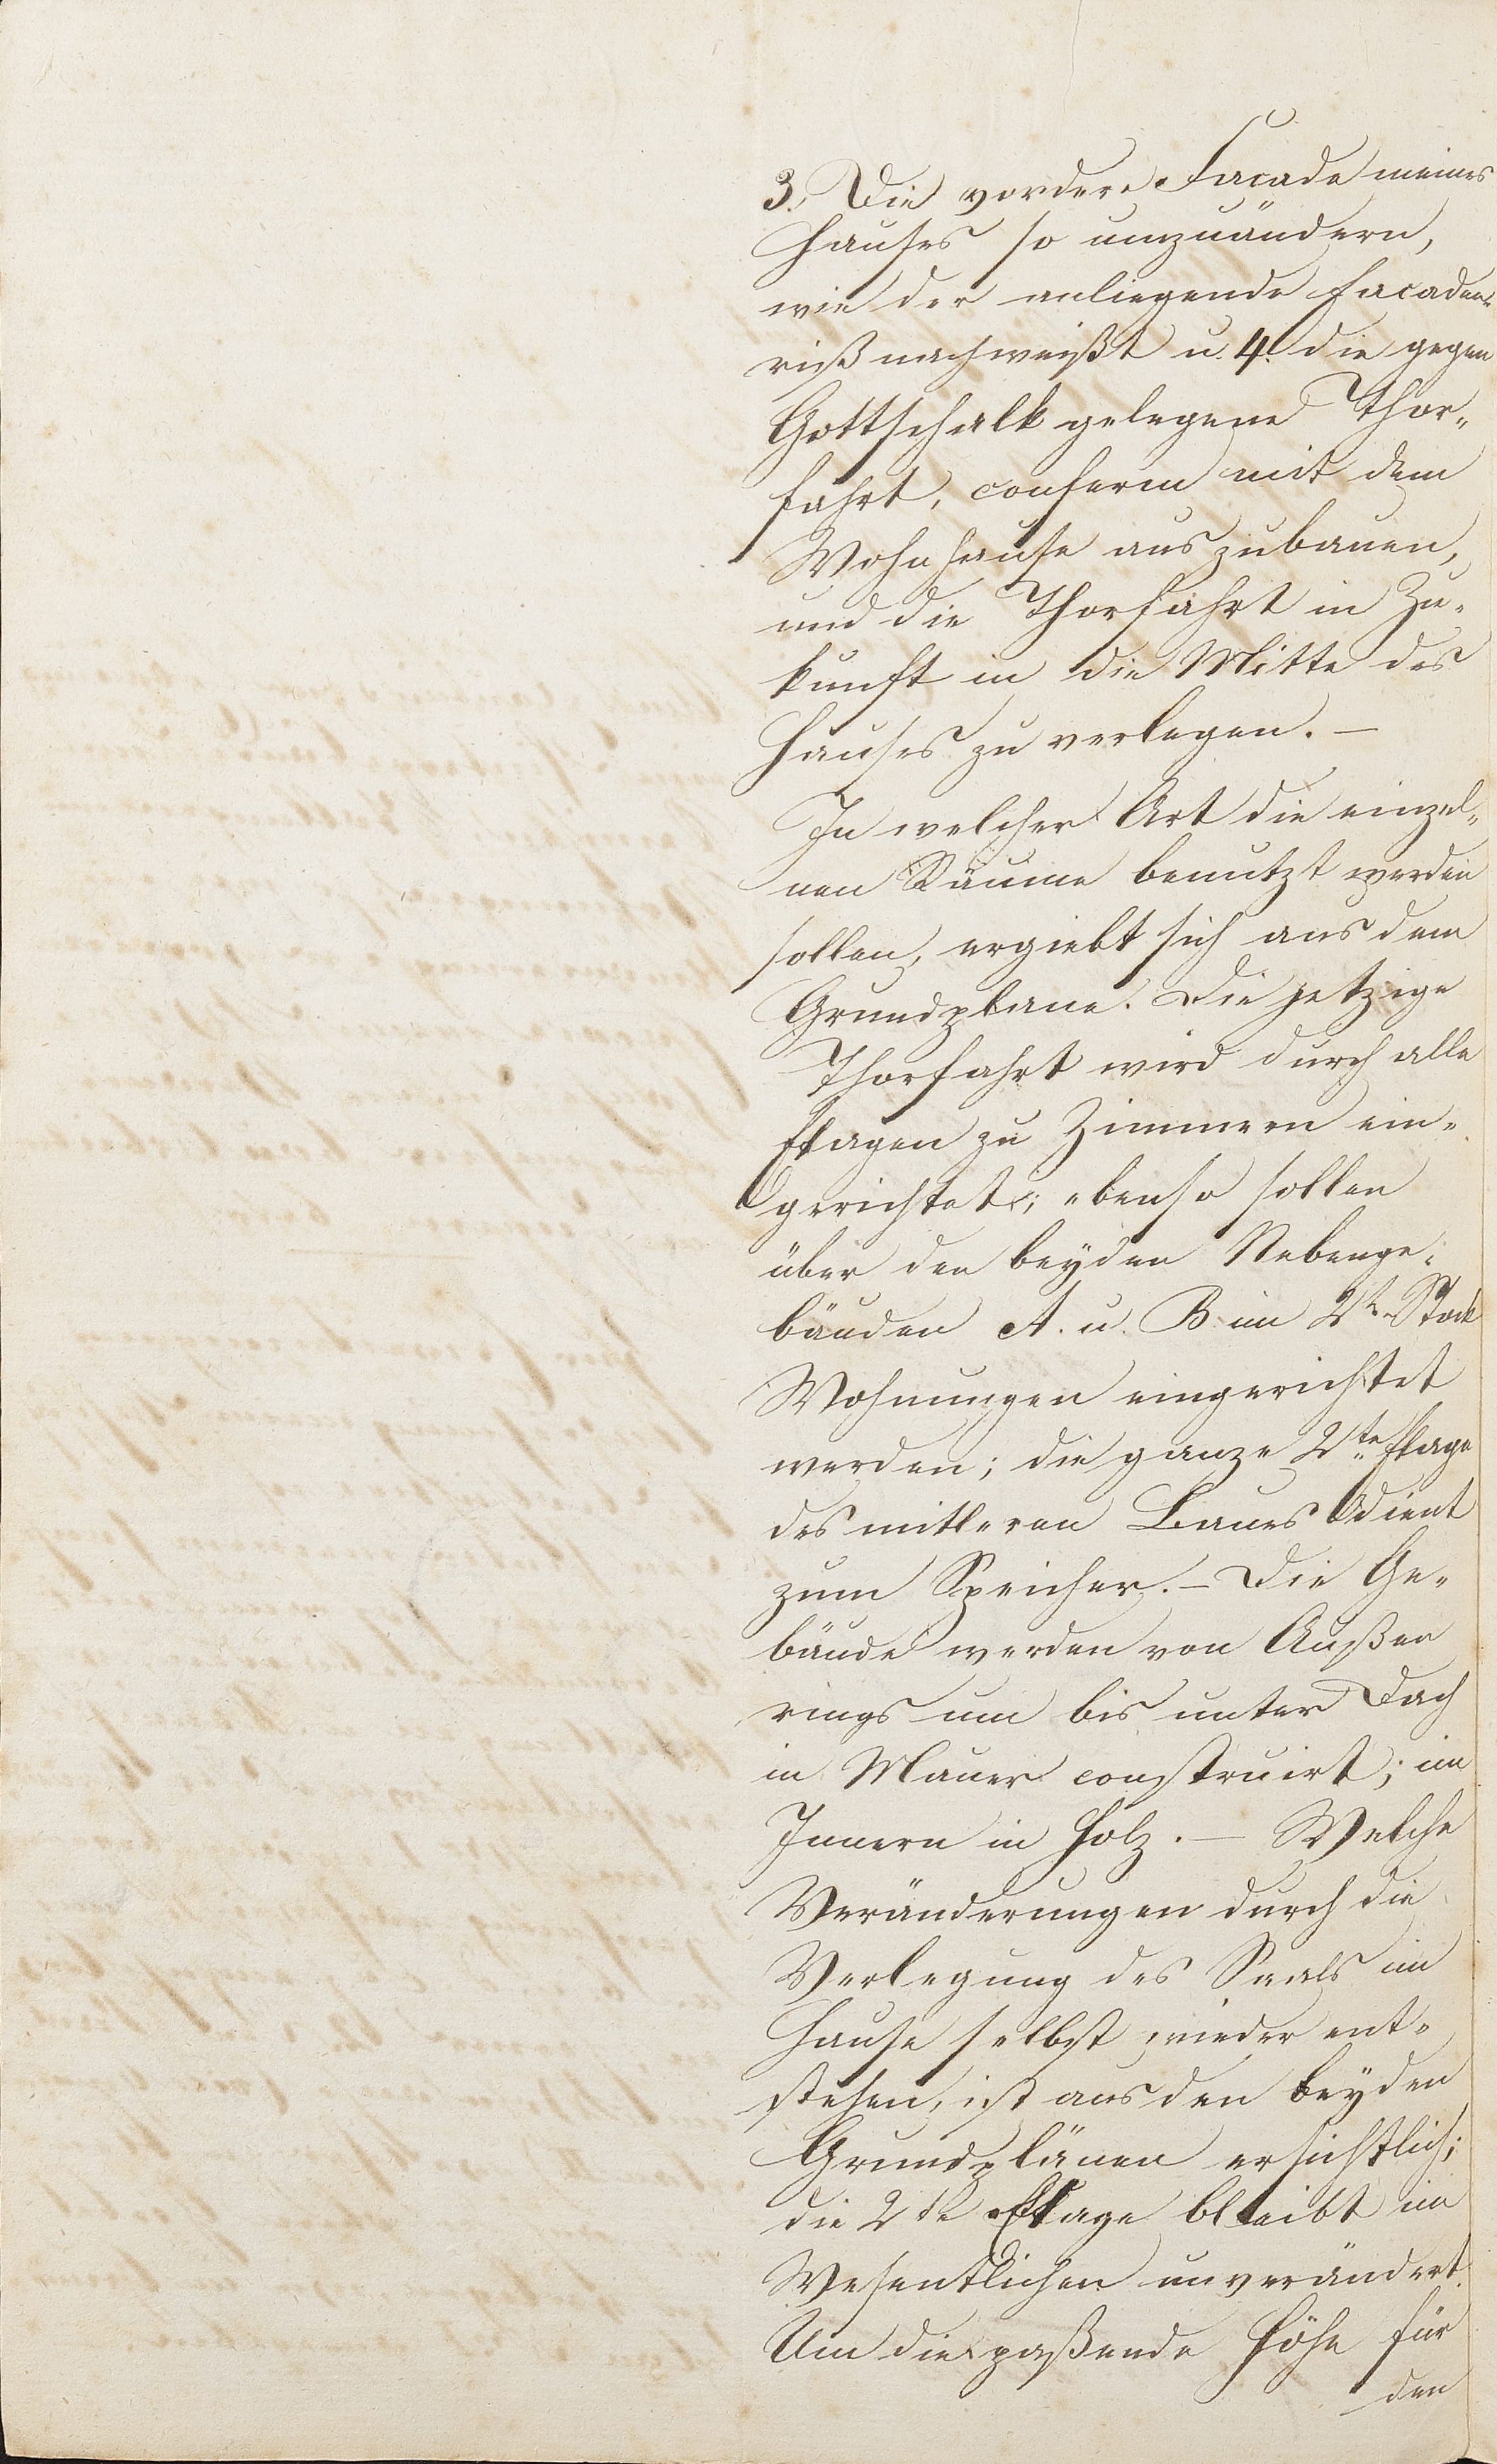 3., Die vordere Facade meines
Hauses so umzuändern,
wie der anliegende Facaden-
riß nachweißt u. 4. die gegen
Gottschalk gelegene Thor-
fahrt, conform mit dem
Wohnhause auszubauen,
und die Thorfahrt in Zu-
kunft in die Mitte des
Hauses zu verlegen. —
In welcher Art die einzel-
nen Räume benutzt werden
sollen, ergiebt sich aus dem
Grundplane. Die jetzige
Thorfahrt wird durch alle
Etagen zu Zimmern ein-
gerichtet; ebenso sollen
über den beyden Nebenge-
bäuden A. u. B im 2t Stock
Wohnungen eingerichtet
werden; die ganze 2te Etage
des mitleren Baues dient
zum Speicher. – Die Ge-
bäude werden von Außen
rings um bis unter Dach
in Mauer construirt; im
Innern in Holz. — Welche
Veränderungen durch die
Verlegung des Saals im
Hause selbst wieder ent-
stehen, ist aus den beyden
Grundplänen ersichtlich;
die 2te Etage bleibt im
Wesentlichen unverändert.
Um die paßende Höhe für
den